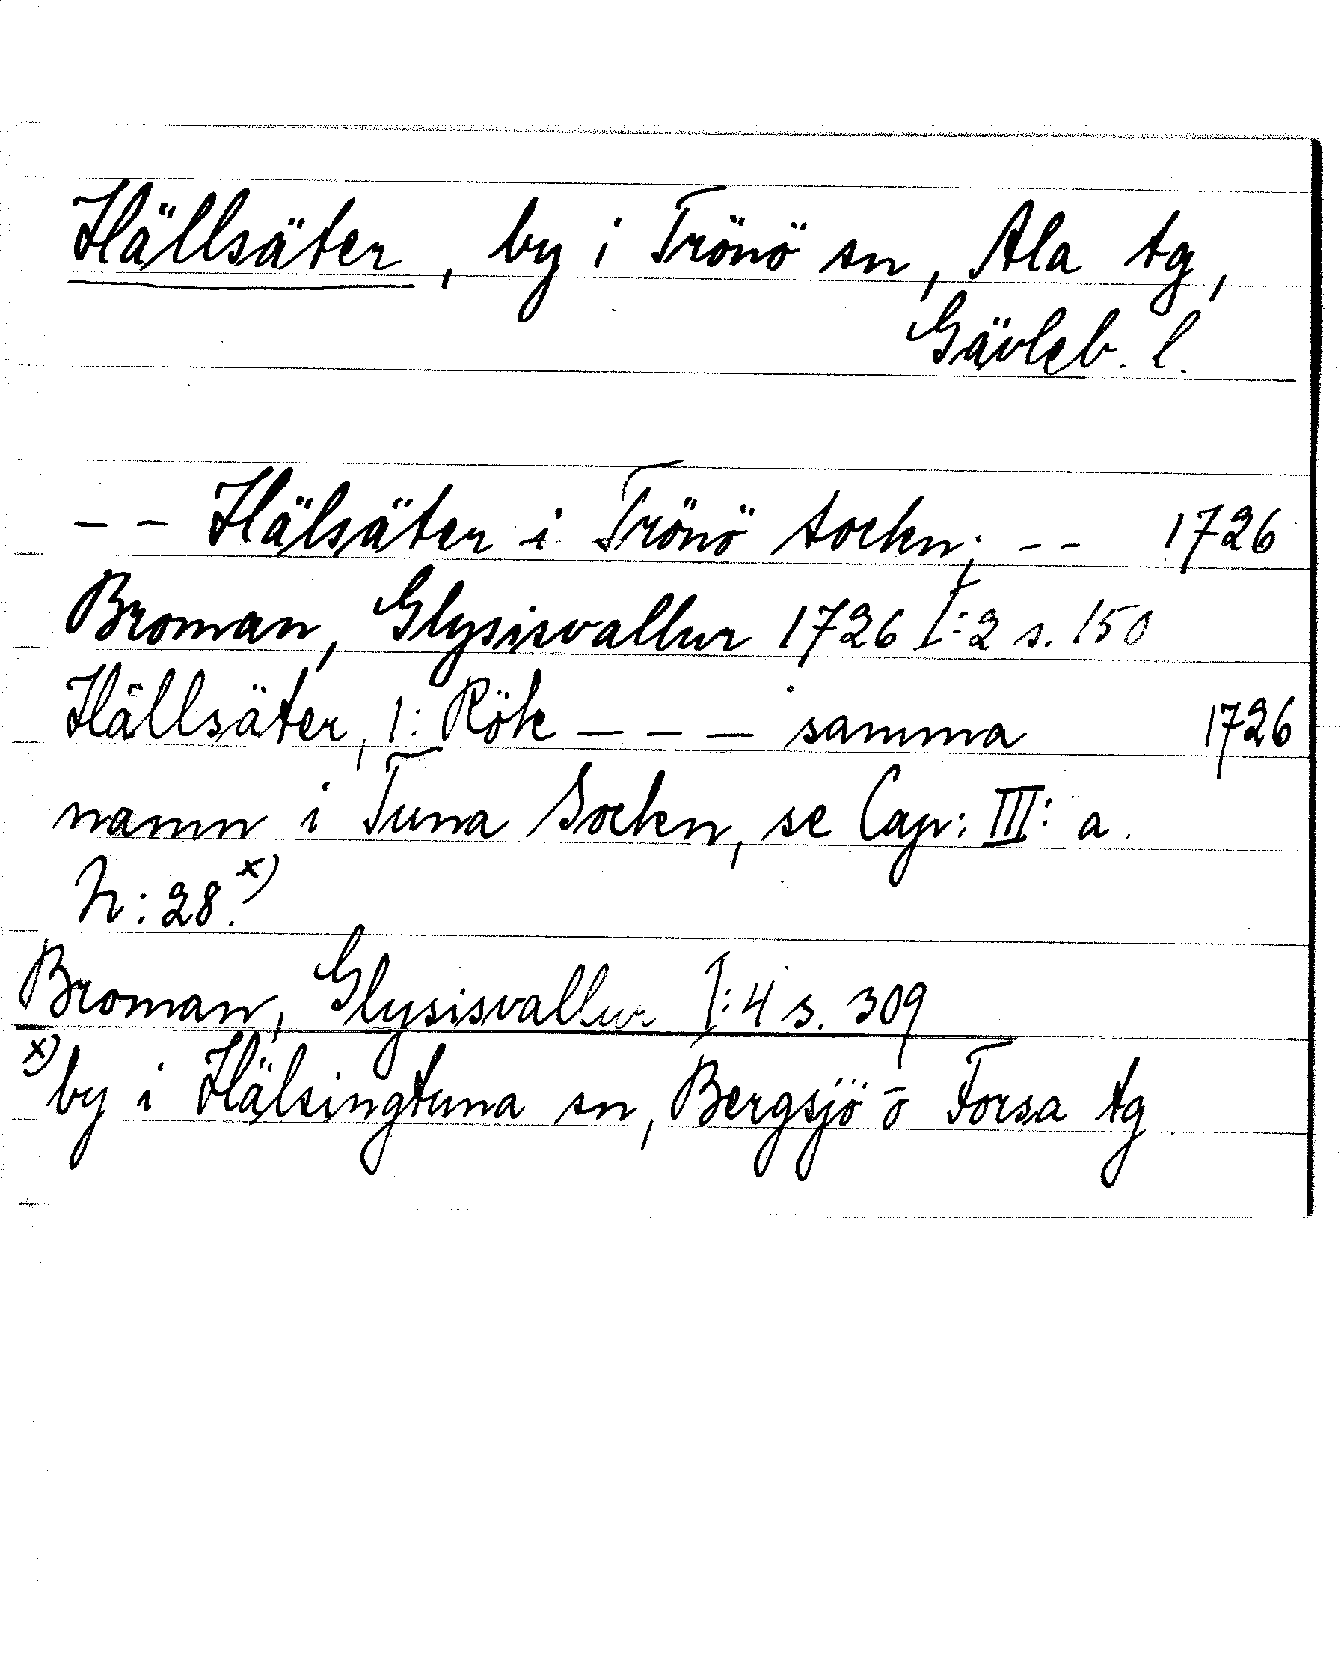 Hällsäter, by i Trönö sn, Ala tg,
Gävleb. l.
-- Hälsäter i Trönö socken; -- 1726
Broman, Glysisvallur 1726 I:2 s. 150
Hällsäter, 1: Rök --- samma 1726
namn i Tuna Socken, se Cap: III: a.
N: 28.x)
Broman, Glysisvallur I:4 s. 309
x) by i Hälsingtuna sn, Bergsjö o Forsa tg